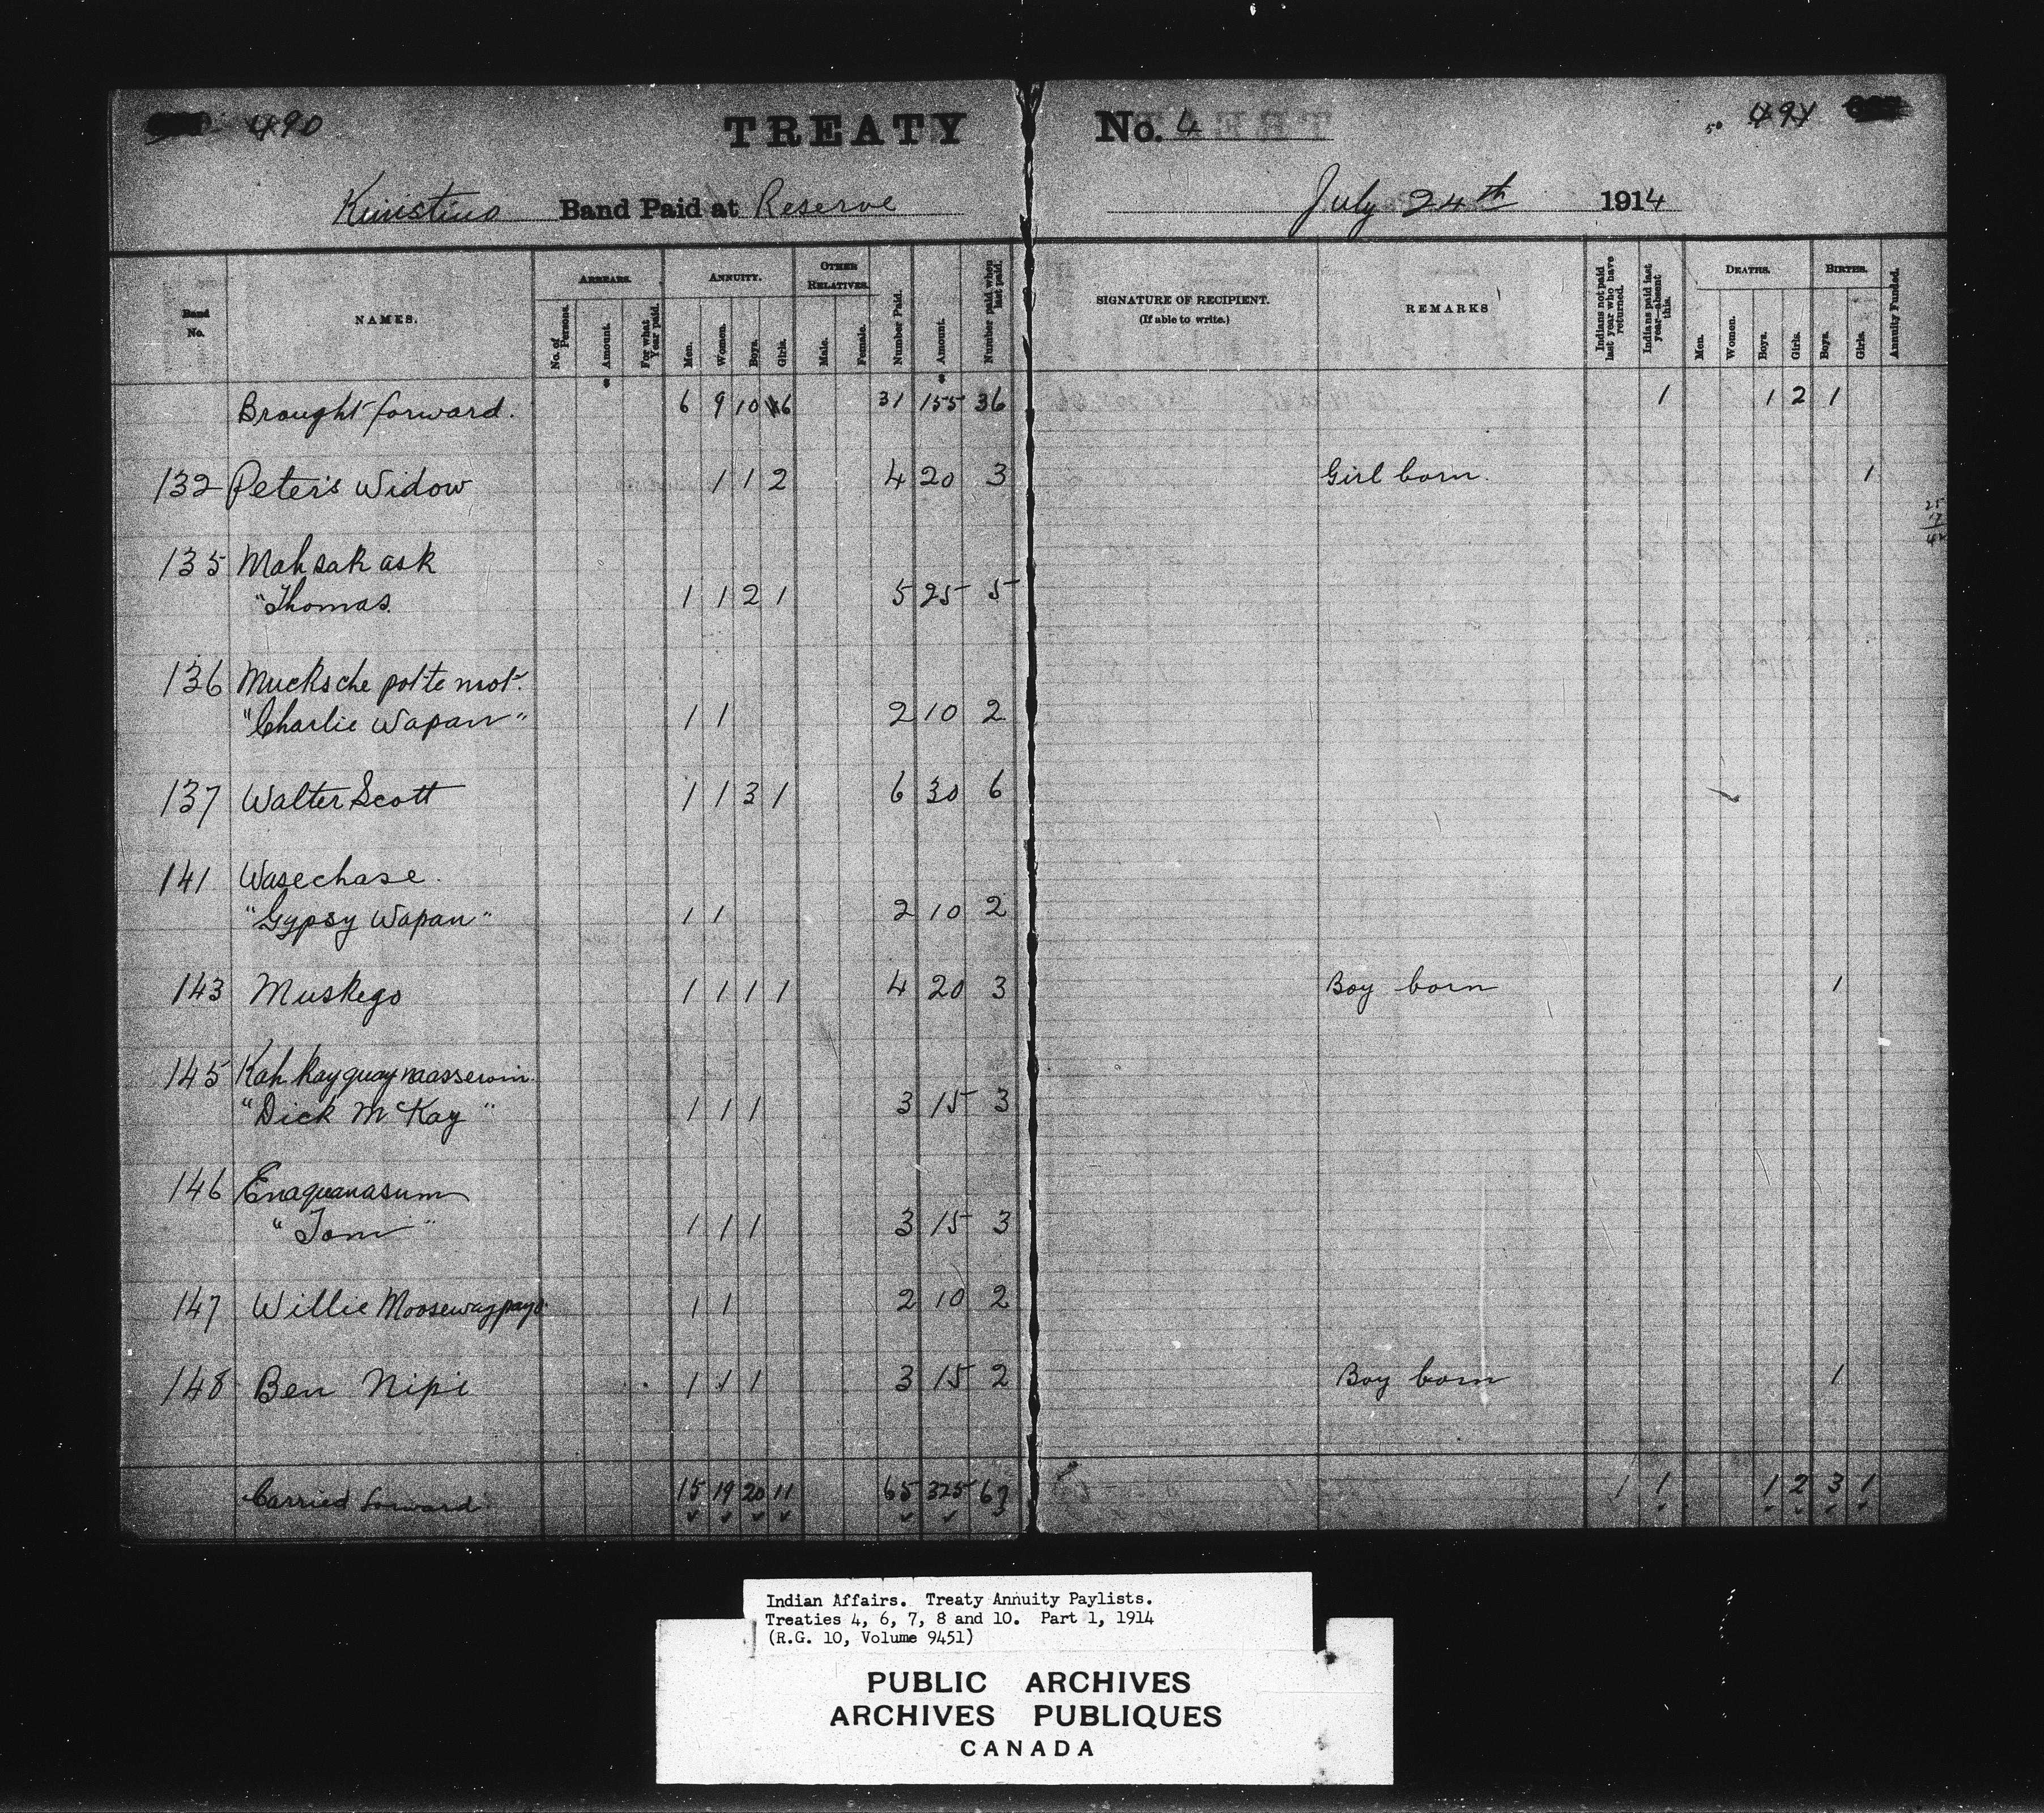 490
TREATY No. 4
491
Kinistino Band Paid at Reserve July 24th 1914
Band No. NAMES. ARREARS. ANNUITY. OTHER RELATIVES. Number Paid. Amount. Number paid when last paid. SIGNATURE OF RECIPIENT. (If able to write.) REMARKS Indians not paid last year who have returned. Indians paid last year—absent this. DEATHS. BIRTHS. Annuity Funded.
No. of Persons. Amount. For what Year paid. Men. Women. Boys. Girls. Male. Female. Men. Women. Boys. Girls. Boys. Girls.
Brought forward. 6 9 10 6 31 155 36 1 1 2 1
132 Peter's Widow 1 1 2 4 20 3 Girl born. 1
135 Mah sak ask
"Thomas. 1 1 2 1 5 25 5
136 Mucksche pot te noot.
"Charlie Wapan" 1 1 2 10 2
137 Walter Scott 1 1 3 1 6 30 6
141 Wasechase.
"Gypsy Wapan" 1 1 2 10 2
143 Muskego 1 1 1 1 4 20 3 Boy born 1
145 Kah kay quay naasserwin
"Dick McKay" 1 1 1 3 15 3
146 Enaquanasum
"Tom" 1 1 1 3 15 3
147 Willie Moosewaypayo 1 1 2 10 2
148 Ben Nipi 1 1 1 3 15 2 Boy born 1
Carried forward 15 19 20 11 65 325 67 1 1 1 2 3 1
Indian Affairs. Treaty Annuity Paylists.
Treaties 4, 6, 7, 8 and 10. Part 1, 1914
(R.G. 10, Volume 9451)
PUBLIC ARCHIVES
ARCHIVES PUBLIQUES
CANADA